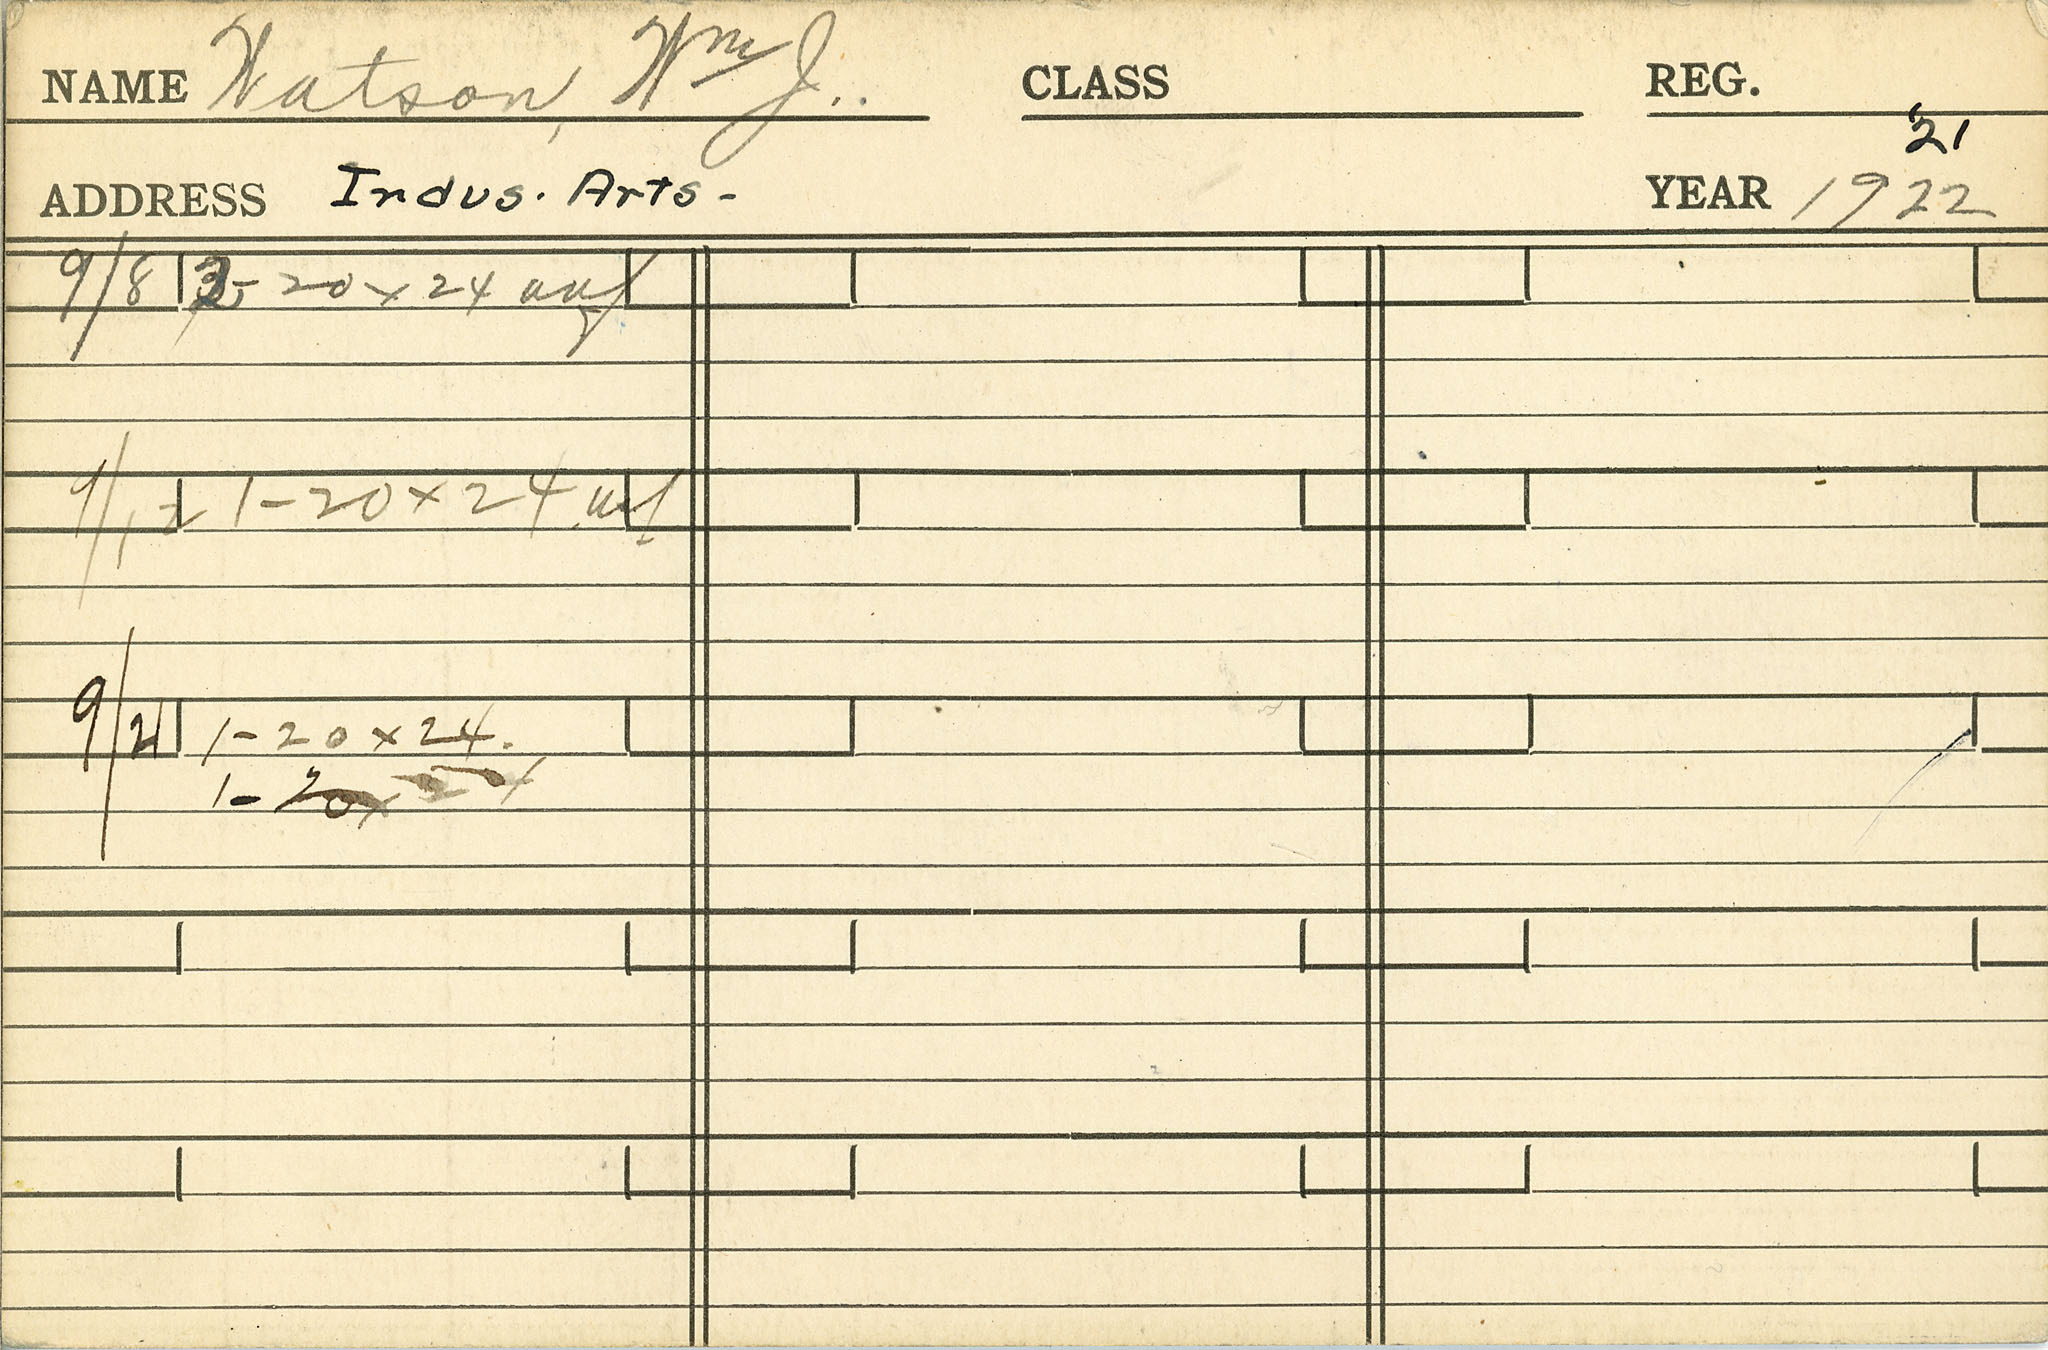 NAME Watson, Wm J.. CLASS REG.
'21
ADDRESS Indus. Arts- YEAR 1922
9/8 - 20 x 24
9/12 1-20x24
9/21 1-20x24.
1-20x24